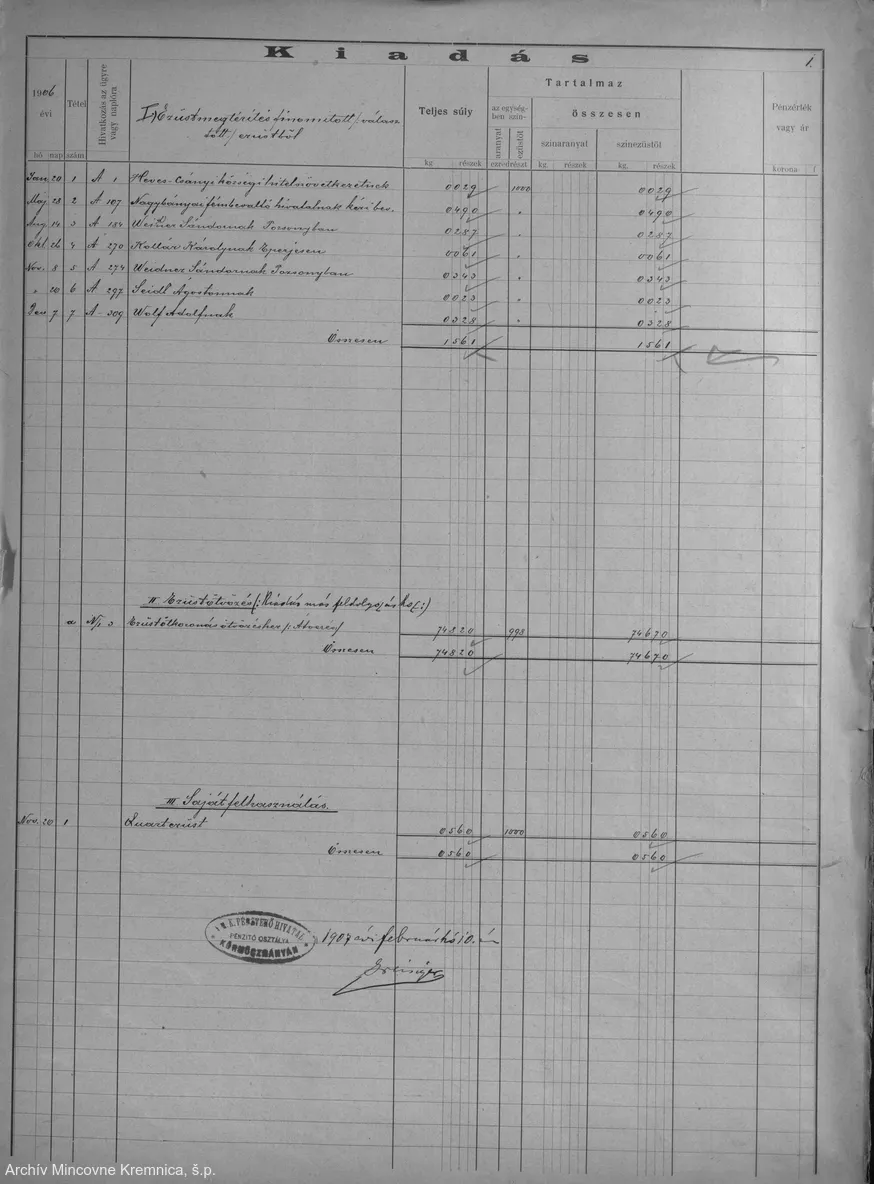 Kiadás
1.
1906 évi
hó nap
Tétel szám
Hivatkozás az ügyre vagy naplóra
I) Ezüstmegtérítés finomított /:válasz
tott:/ ezüstből
Teljes súly
kg részek
Tartalmaz
az egységben szín-
aranyat ezüstöt
ezredrészt
összesen
színaranyat
kg. részek
színezüstöt
kg. részek
Pénzérték vagy ár
korona f
Jan. 20 1 A 1 Heves-Csányi községi hitelszövetkezetnek 0029 1000 0029
Máj. 28 2 A 107 Nagybányai fémbeváltó hivatalnak kéri bev. 0490 " 0490
Aug. 14 3 A 184 Sándornak Pozsonyban 0287 " 0287
Okt. 26 4 A 270 Kollár Károlynak Eperjesen 0061 " 0061
Nov. 8 5 A 274 Weidner Sándornak Pozsonyban 0343 " 0343
" 20 6 A 297 Seidl Ágostonnak 0023 " 0023
Dec. 7 7 A 309 Wolf Adolfnak 0328 " 0328
Összesen 1561 1561
II. Ezüstötvözés (:Kiadás más feldolgozáshoz:)
a N/. 3 Ezüstötkoronás ötvözéshez 74820 998 74670
Összesen 74820 74670
III. Saját felhasználás.
Nov. 20 1 Quartezüst 0560 1000 0560
Összesen 0560 0560
PÉNZVERŐ HIVATAL
PÉNZITŐ OSZTÁLYA
KÖRMÖCZBÁNYÁN
1907 évi február hó 10. én
Archív Mincovne Kremnica, š.p.